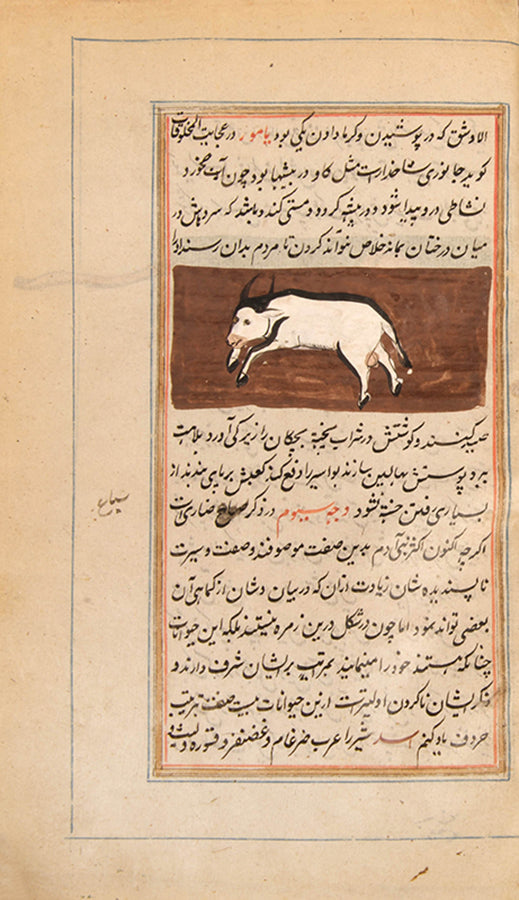 الا وشق که در پوشیدن و گرما دادن یکی بود یامور در عجایب المخلوقات
کوید جانوری شاخدارست مثل کاو در بیشها بود چون آب خورد
نشاطی درو پیدا شود و در بیشه کردد و مستی کند و باشد که سرویش در
میان درختان بماند خلاص نتواند کردن تا مردم بدان رسند او را
صید کنند و کوشتش در شراب پخته بچکان را زیرکی آورد علامت
برو پوستش بهالین سازند بواسیر را دفع کند کعبش بر پای بندند از
بسیاری رفتن خسته نشود وجه سیوم در ذکر سباع ضاری است
سباع
اکرچه اکنون اکثر بنی آدم بدین صفت موصوفند و صفت و سیرت
ناپسندیده شان زیادت ازان که در بیان دشان از کماهی آن
بعضی تواند نمود اما چون در شکل درین زمره نیستند بلکه این حیوانات
چنانکه هستند خود را مینمایند بمرتبه بر ایشان شرف دارند و
ذکر ایشان ناکردن اولیترست ازین حیوانات بیست صفت بترتیب
حروف یاد کنم اسد شیر را عرب ضرغام و غضنفر و قسوره و لیث و